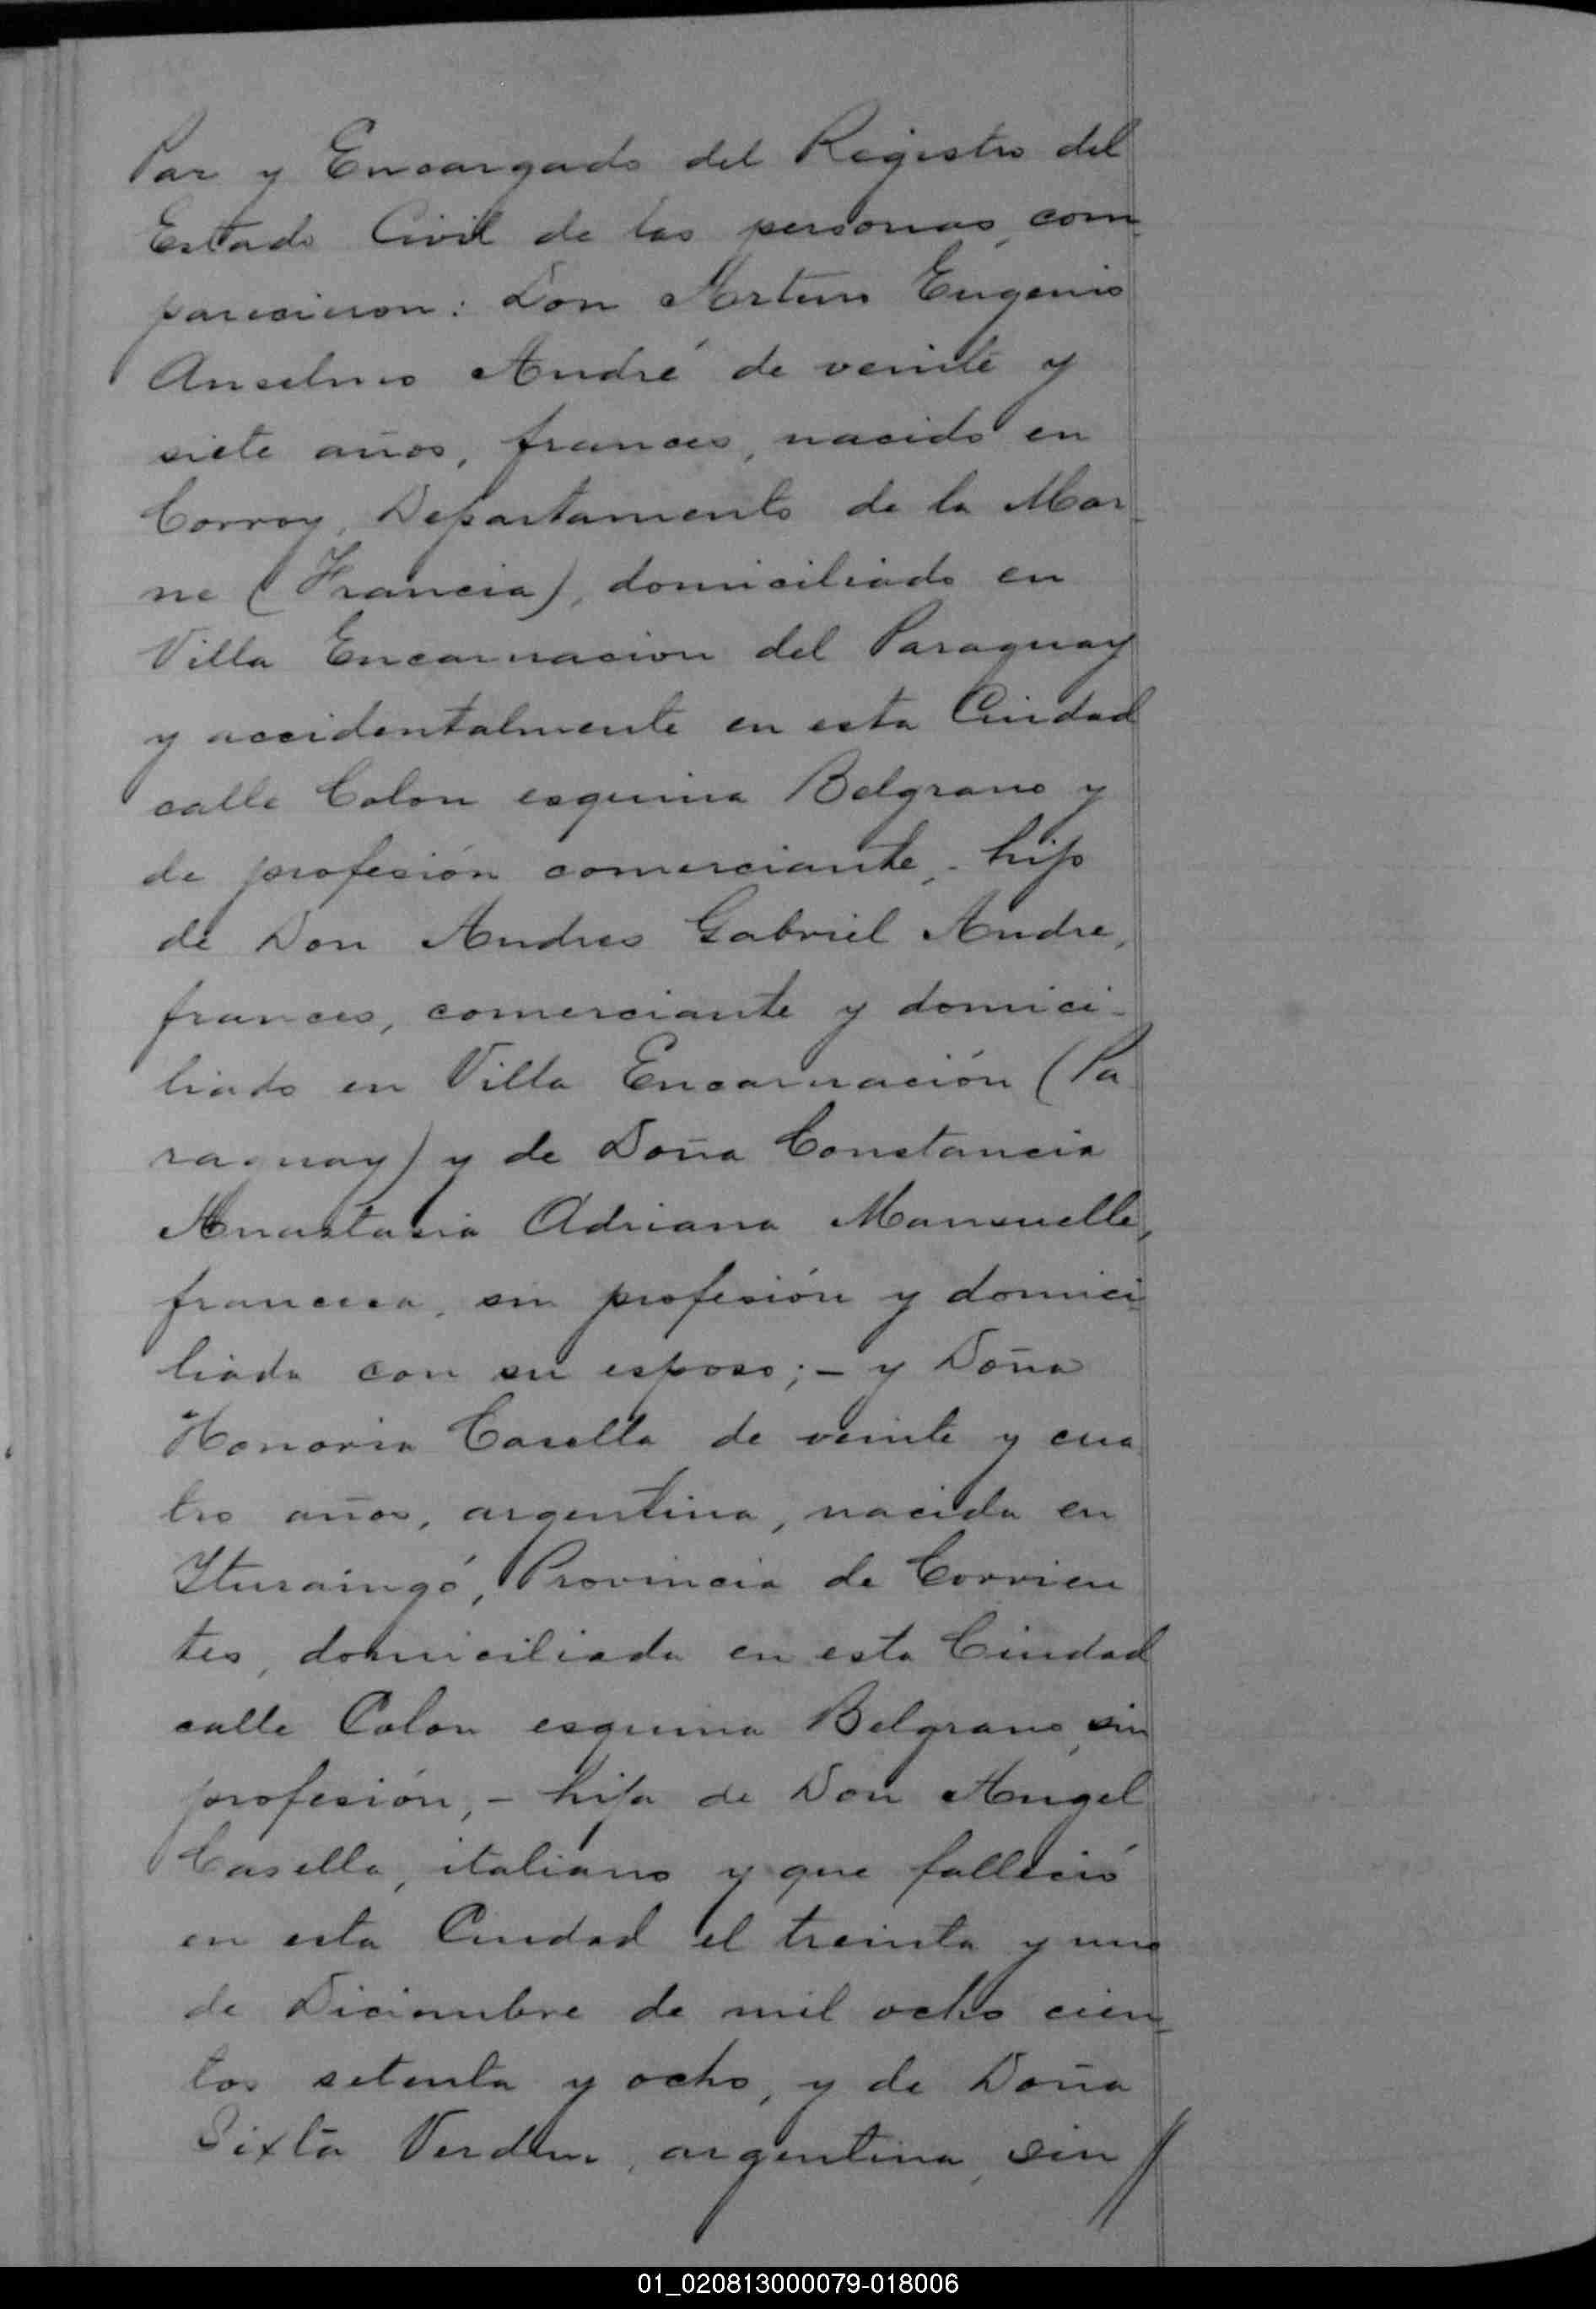 Paz y Encargado del Registro del
Estado Civil de las personas, com
parecieron: Don Arturo Eugenio
Anselmo André de veinte y
siete años, frances, nacido en
Corroy, Departamento de la Mar
ne (Francia), domiciliado en
Villa Encarnacion del Paraguay
y accidentalmente en esta Ciudad
calle Colon esquina Belgrano y
de profesión comerciante,- hijo
de Don Andres Gabriel Andre,
frances, comerciante y domici-
liado en Villa Encarnación (Pa
raguay) y de Doña Constancia
Anastasia Adriana Mansuelle,
francesa, sin profesión y domici
liada con su esposo;- y Doña
Honoria Casella de veinte y cua
tro años, argentina, nacida en
Ituzaingó, Provincia de Corrien
tes, domiciliada en esta Ciudad
calle Colon esquina Belgrano, sin
profesión,- hija de Don Angel
Casella, italiano y que falleció
en esta Ciudad el treinta y uno
de Diciembre de mil ocho cien
tos setenta y ocho, y de Doña
Sixta argentina, sin //
01_020813000079-018006